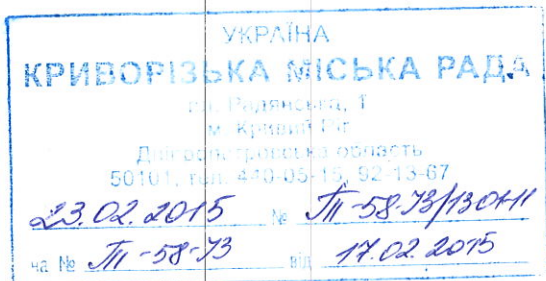 УКРАЇНА
КРИВОРІЗЬКА МІСЬКА РАДА
пл. Радянська, 1
м. Кривий Ріг
Дніпропетровська область
50101, тел. 440-05-15, 92-13-67
23.02.2015 № ПІ-58-ЗЗ/13011
на № ПІ-58-ЗЗ від 17.02.2015